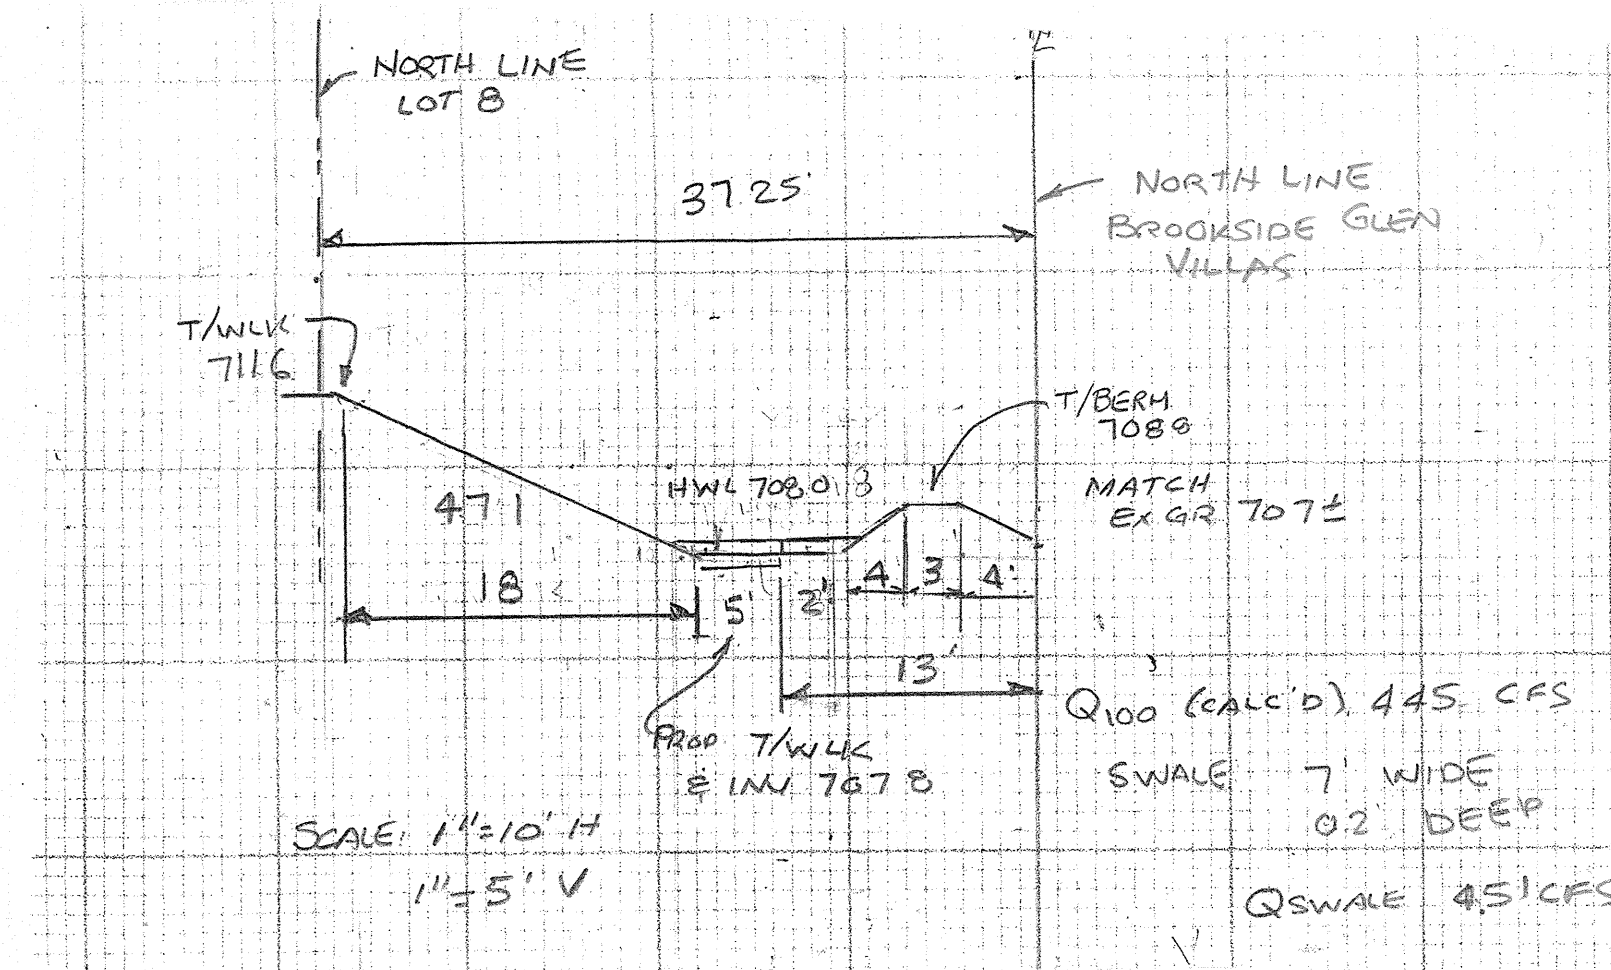 NORTH LINE
LOT 8
37.25'
NORTH LINE
BROOKSIDE GLEN
VILLAS
T/WLK
711.6
T/BERM
708.8
HWL 708.0
MATCH
EX GR 707±
4.7:1
18
5'
2'
4
3
4'
13'
PROP T/WLK
& INV 707.8
Q100 (CALC'D) 4.45 CFS
SWALE 7' WIDE
0.2' DEEP
SCALE: 1"=10' H
1"=5' V
QSWALE 4.51 CFS